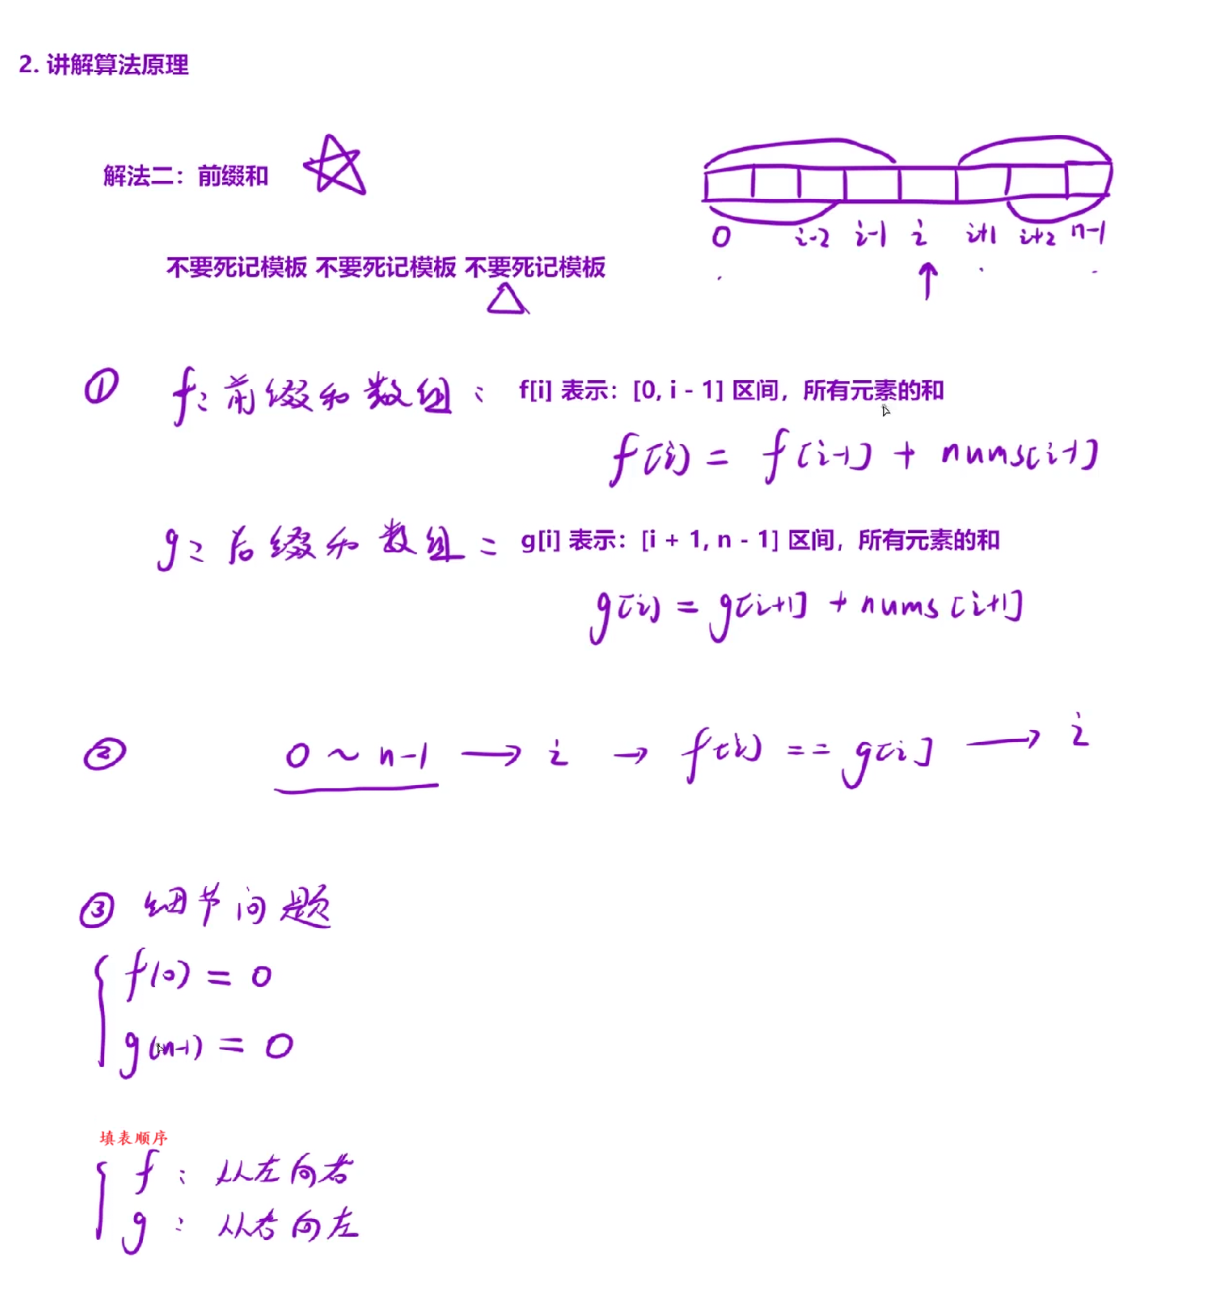 2. 讲解算法原理
解法二：前缀和
0 i-2 i-1 i i+1 i+2 n-1
不要死记模板 不要死记模板 不要死记模板
① f: 前缀和数组: f[i] 表示：[0, i - 1] 区间，所有元素的和
f[i] = f[i-1] + nums[i-1]
g: 后缀和数组: g[i] 表示：[i + 1, n - 1] 区间，所有元素的和
g[i] = g[i+1] + nums[i+1]
② 0 ~ n-1 → i → f[i] == g[i] → i
③ 细节问题
f(0) = 0
g(n-1) = 0
填表顺序
f: 从左向右
g: 从右向左